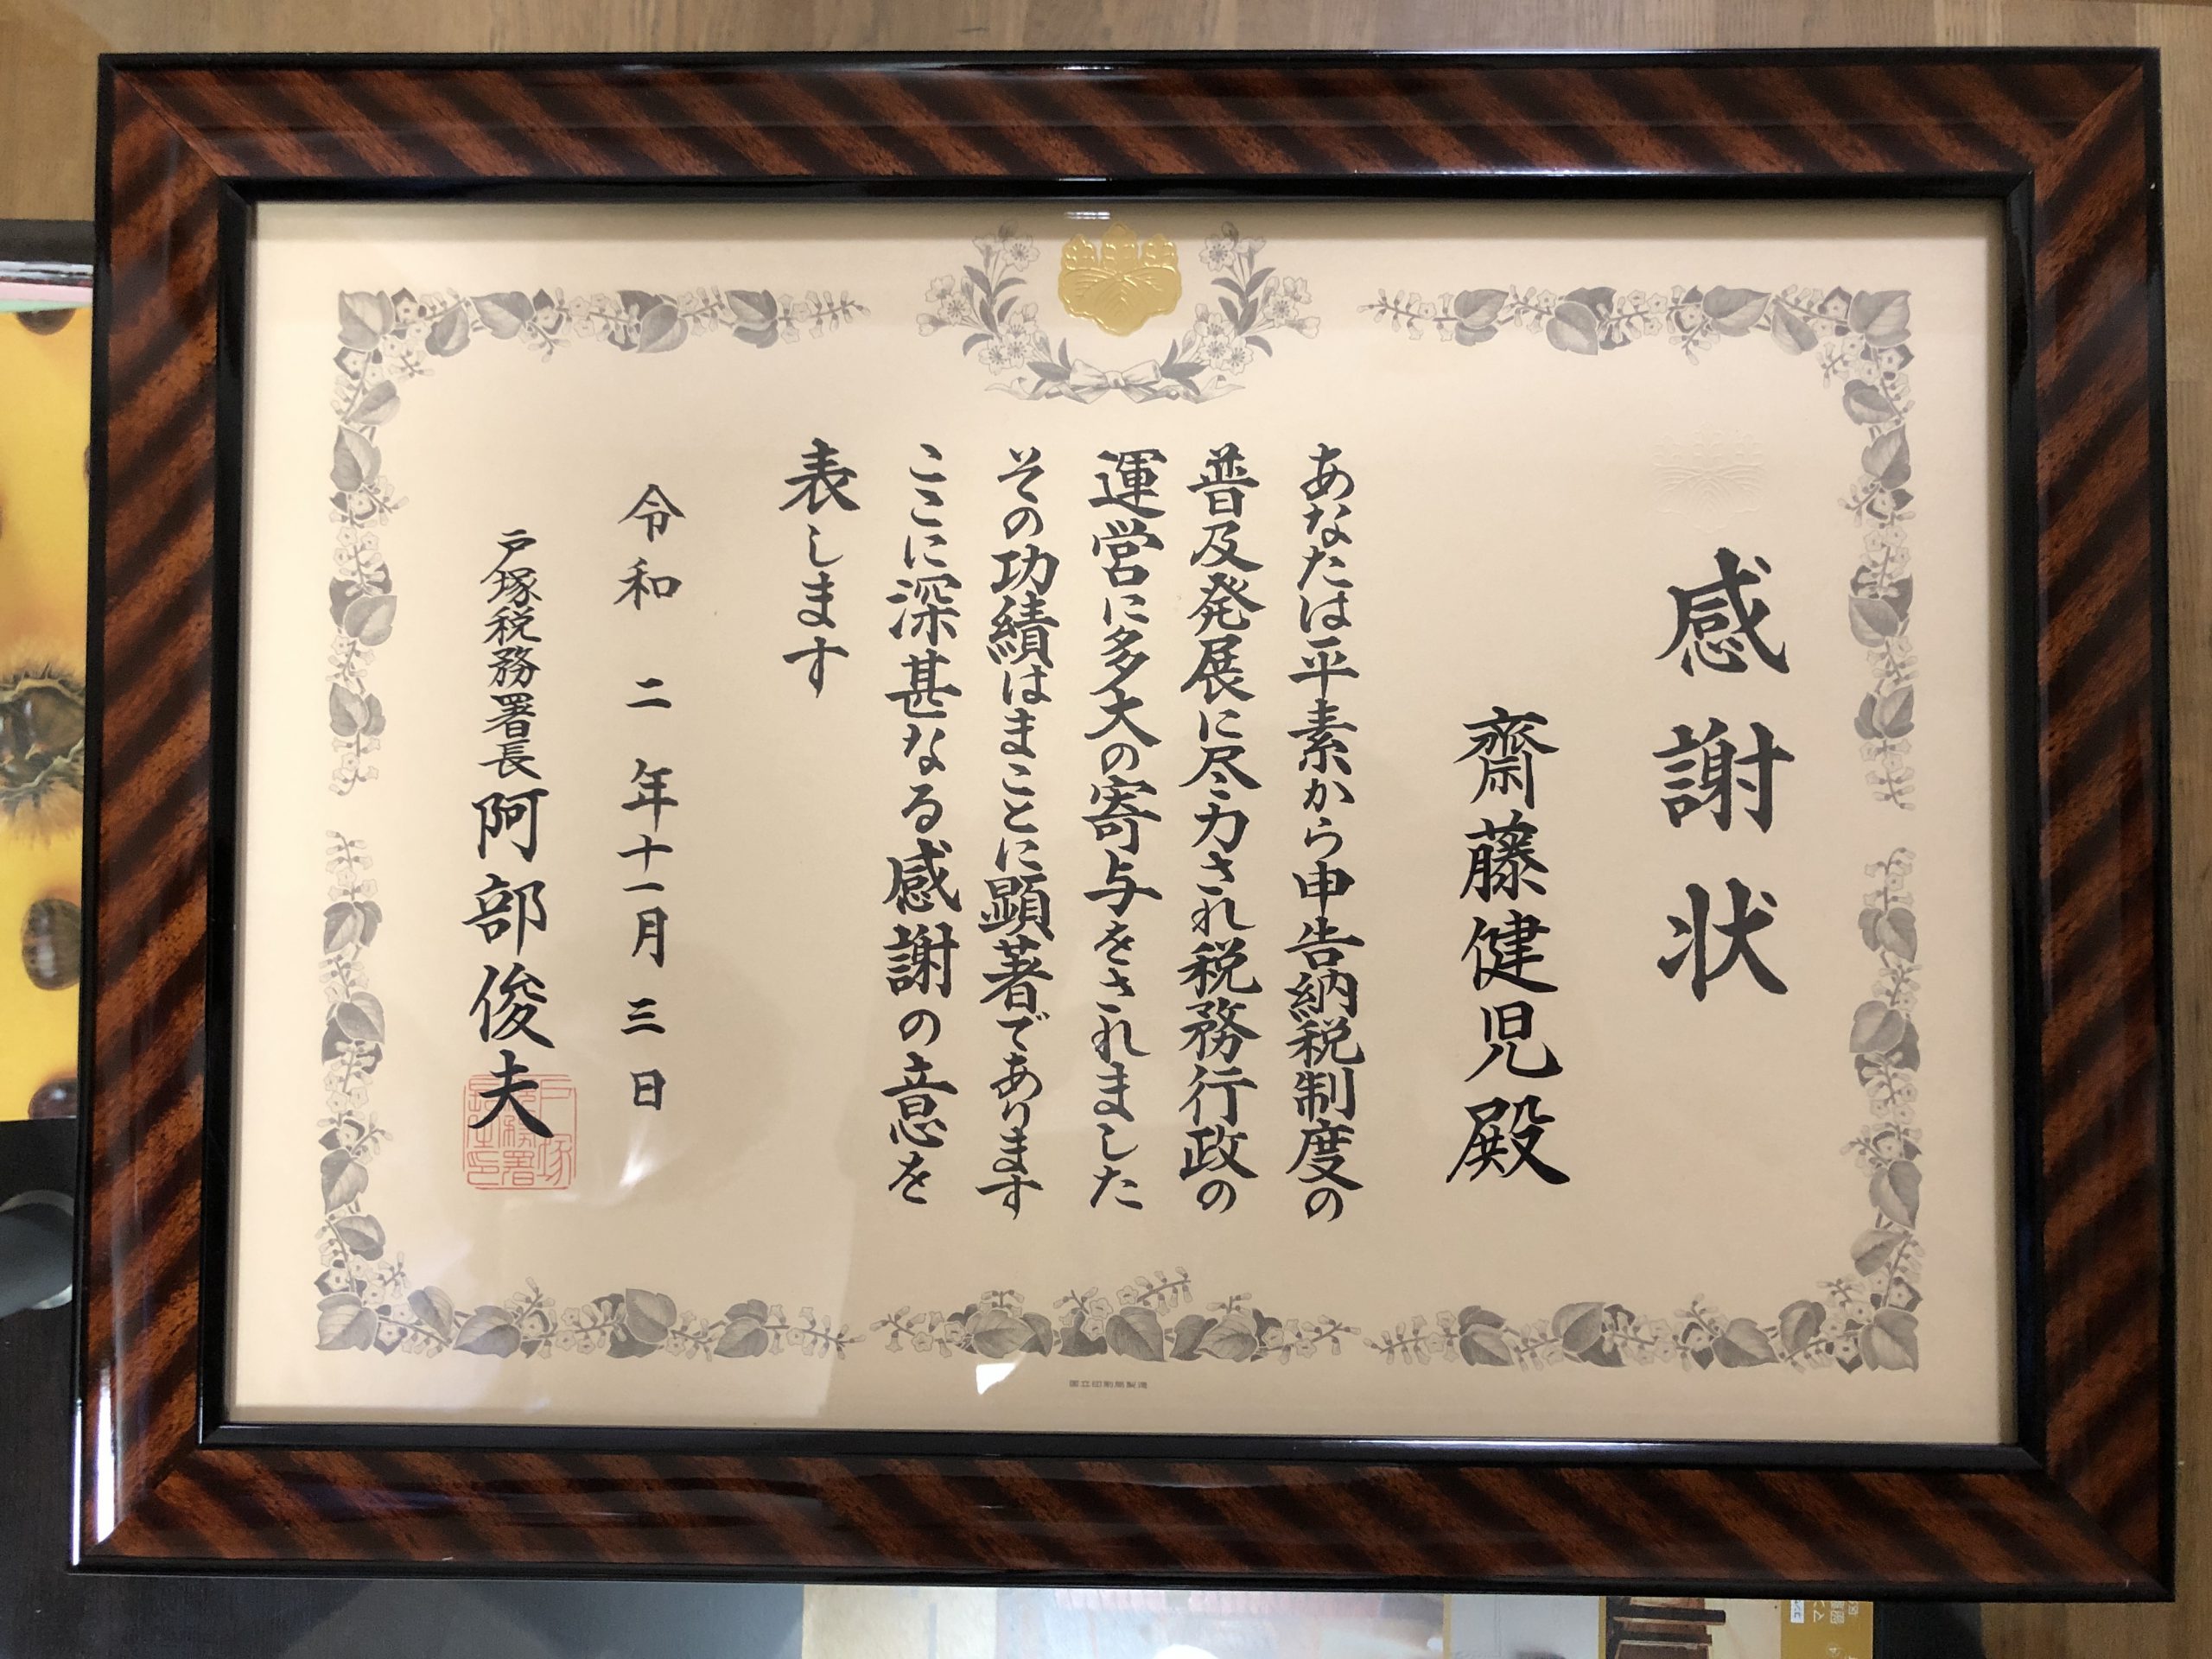 感謝状
齋藤健児殿
あなたは平素から申告納税制度の
普及発展に尽力され税務行政の
運営に多大の寄与をされました
その功績はまことに顕著であります
ここに深甚なる感謝の意を
表します
令和二年十一月三日
戸塚税務署長阿部俊夫
国立印刷局製造